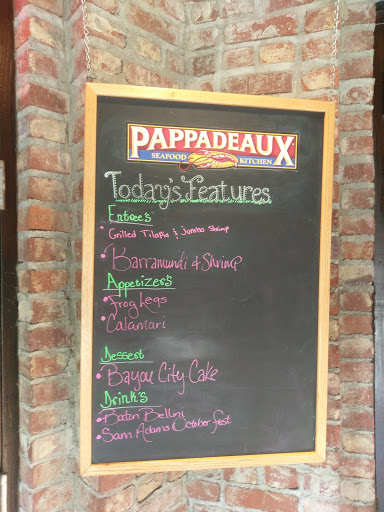 PAPPADEAUX
SEAFOOD KITCHEN
Today's Features
Entree's
• Grilled Tilapia & Jumbo Shrimp
• Barramundi & Shrimp
Appetizer's
• Frog Legs
• Calamari
Dessert
• Bayou City Cake
Drink's
• Batzn Bellini
• Sam Adams October fest